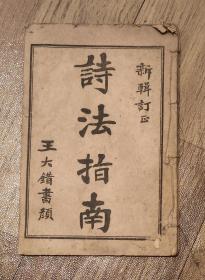 新輯訂正
詩法指南
王大錯書顏